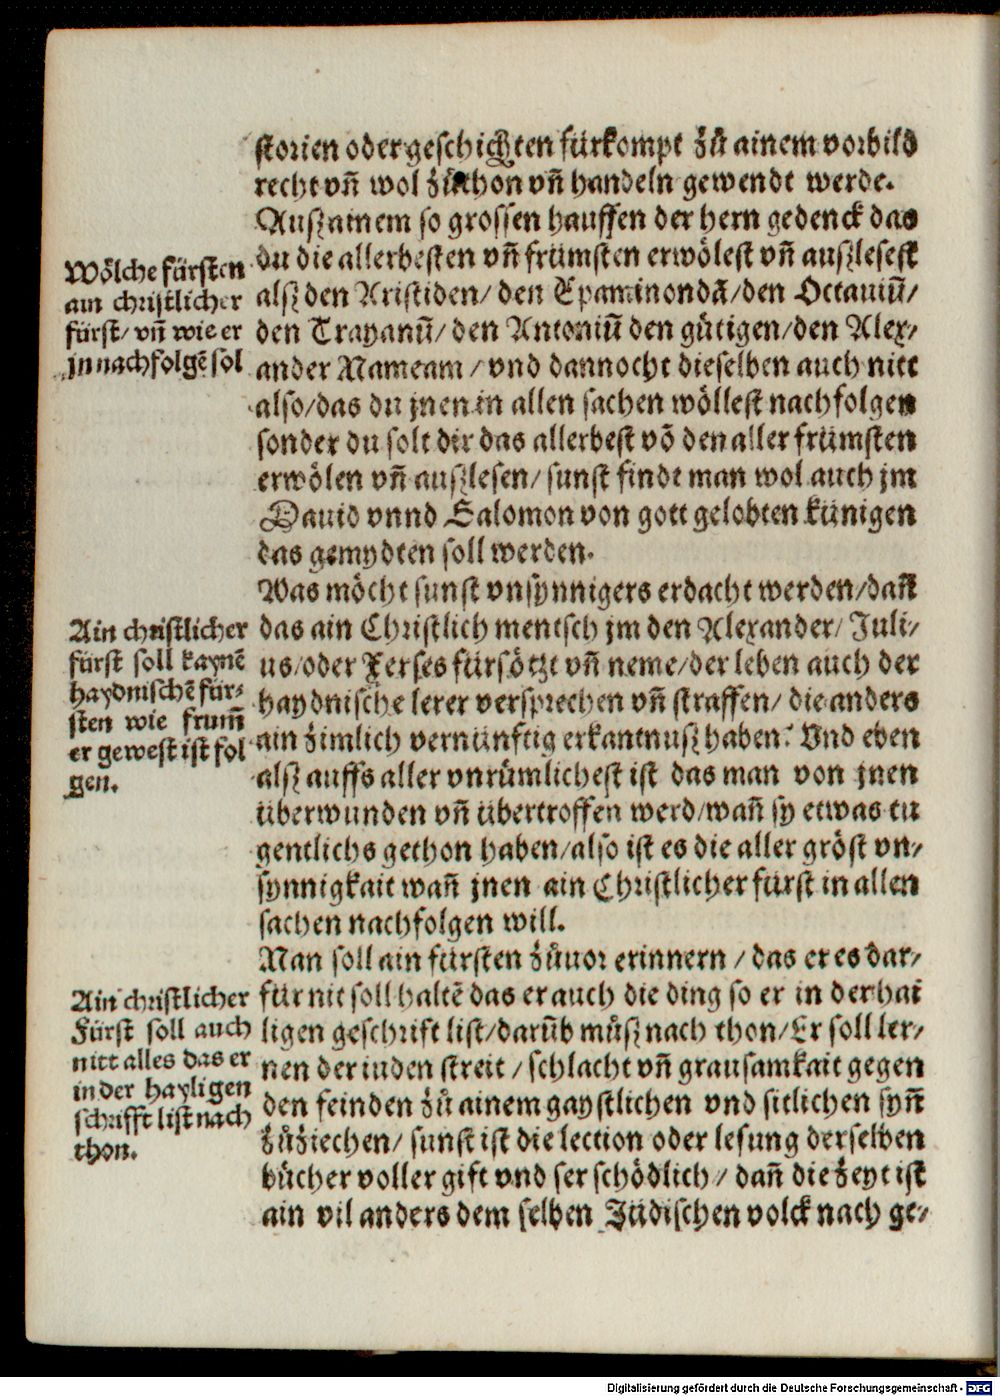 storien oder geschichten fürkompt zů ainem vorbild
recht vñ wol zůthon vñ handeln gewendt werde.
Ausz ainem so grossen hauffen der hern gedenck das
du die allerbesten vñ frümsten erwölest vñ auszlesest
alsz den Aristiden/ den Epaminondā/ den Octauiū/
den Trayanū/ den Antoniū den gütigen/ den Alex/
ander Mameam / vnd dannocht dieselben auch nitt
also/ das du jnen in allen sachen wöllest nachfolgen
sonder du solt dir das allerbest võ den aller frümsten
erwölen vñ auszlesen/ sunst findt man wol auch jm
Dauid vnnd Salomon von gott gelobten künigen
das gemydten soll werden.
Wölche fürsten
ain christlicher
fürst/ vñ wie er
jn nachfolgē sol
Was möcht sunst vnsynnigers erdacht werden/ dañ
das ain Christlich mentsch jm den Alexander/ Juli/
us/ oder Xerses fürsötzt vñ neme/ der leben auch der
haydnische lerer versprechen vñ straffen/ die anders
ain zimlich vernünftig erkantnusz haben: Vnd eben
alsz auffs aller vnrümlichest ist das man von jnen
überwunden vñ übertroffen werd/ wañ sy etwas tu
gentlichs gethon haben/ also ist es die aller gröst vn/
synnigkait wañ jnen ain Christlicher fürst in allen
sachen nachfolgen will.
Ain christlicher
fürst soll kaynē
haydnischē für-
sten wie frum̃
er gewest ist fol
gen.
Man soll ain fürsten zůuor erinnern / das er es dar/
für nit soll haltē das er auch die ding so er in der hai
ligen geschrift list/ darüb můsz nach thon/ Er soll ler/
nen der iuden streit / schlacht vñ grausamkait gegen
den feinden zů ainem gaystlichen vnd sitlichen syñ
zůziechen/ sunst ist die lection oder lesung derselben
bücher voller gift vnd ser schödlich / dañ die zeyt ist
ain vil anders dem selben Jüdischen volck nach ge/
Ain christlicher
Fürst soll auch
nitt alles das er
in der hayligen
schrifft list nach
thon.
Digitalisierung gefördert durch die Deutsche Forschungsgemeinschaft - DFG